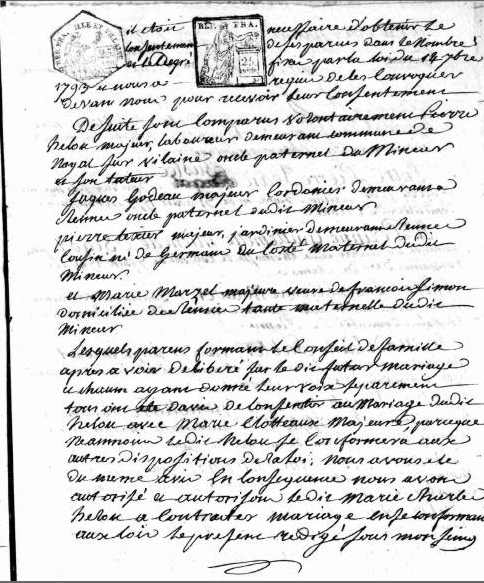 RÉP. FRA.
il étoit nécessaire d'obtenir le
consentement de ses parens dans le nombre
et le degré fixé par la loi du 7bre
1793 a nous a requis de les convoquer
devant nous pour recevoir leur consentement
De suite sont comparus volontairement Pierre
helou majeur, laboureur demeurant commune de
Noyal sur Vilaine oncle paternel du Mineur
et son tuteur
Jaques Godeau majeur Cordonier demeurant a
Rennes oncle paternel dudit Mineur
pierre texier majeur, jardinier demeurant a Rennes
Cousin né de Germain du Costé Maternel dudit
Mineur
et Marie Marzel majeure veuve de francois Simon
domiciliée de Rennes tante maternelle dudit
Mineur
Lesquels parens formant le Conseil de famille
après avoir delibéré sur le dit futur mariage
et chacun ayant donné leur voix séparément
tous ont été d'avis de Consentir au Mariage dudit
helou avec Marie Clotteaux Majeure, parceque
Neanmoins le dit helou se Conformera aux
autres dispositions de la loi, Nous avons été
du meme avis En Consequence nous avons
autorisé et autorison le dit Marie
helou a Contracter mariage en se conformant
aux loix le present redigé sous mon seing